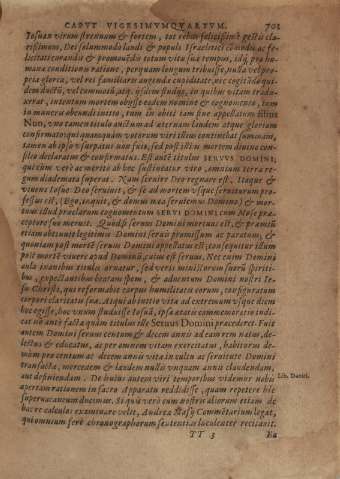 CAPVT VIGESIMVMQVARTVM. 701
Iosuam virum strenuum & fortem, tot rebus felicissimè gestis cla-
rissimum, Dei solummodo laudi & populi Israelitici cōmodis ac fe-
licitati comandis & promouēdis totum vitæ suæ tempus, idq; pro hu-
mana conditionis ratione, perquam longum tribuisse, nulla vel pro-
pria gloria, vel rei familiaris augenda cupiditate, nec cogitādo qui-
dem ductū, vel commotū, atq. ijsdem studijs, in quibus vitam tradu-
xerat, intentum mortem obijsse eodem nomine & cognomento, tam
in munera obeundi initio, tum in obitu tam sine appellatum filius
Nun, vno tamen titulo auctum ad æternam laudem atque gloriam
confirmato: qui quanquam votorum viri illius continebat summam,
tamen ab ipso vsurpatus non fuit, sed post illius mortem diuino con-
silio declaratus & confirmatus. Est autē titulus SERVVS DOMINI,
qui cùm verè ac meritò ab hoc sustineatur viro, omnium terræ re-
gum diademata superat. Nam seruire Deo regnare est. Itaque &
viuens Iosue Deo seruiuit, & se ad mortem vsque seruiturum pro-
fessus est, (Ego, inquit, & domus mea seruiemus Domino) & mor-
tuus illud præclarum cognomentum SERVI DOMINI cum Mose præ-
ceptore suo meruit. Quòd si seruus Domini mortuus est, & præmiū
etiam obtinuit legitimo Domini seruo promissum ac paratum, &
quoniam post mortē seruus Domini appellatus est; consequitur illum
post mortē viuere apud Dominū, cuius est seruus. Nec enim Domini
aula inanibus titulis ornatur, sed veris ministrorum suorū spiriti-
bus, expectantibus beatam spem, & aduentum Domini nostri Ie-
su Christi, qui reformabit corpus humilitatis eorum, configuratum
corpori claritatis suæ. Atqui ab initio vitæ ad extremum vsque diem
hoc egisse, hoc vnum studuisse Iosuā, ipsa ætatis commemoratio indi-
cat nō ante facta quàm titulus iste SERVVS DOMINI præcederet. Fuit
autem Domini seruus centum & decem annis ad eam rem natus, de-
lectus & educatus, ac per omnem vitam exercitatus, habitoru de-
mùm pro centum ac decem annis vitæ in cultu ac seruitute Domini
transactæ, mercedem & laudem nullis vnquam annis claudendam,
aut definiendam. De huius autem viri temporibus videmur nobis
apertam rationem in sacro Apparatu reddidisse, quam repetere hîc
superuacaneum ducimus. Si quis verò eum nostris aliorum etiam de
hac re calculos examinare velit, Andreæ Masij Commētarium legat,
qui omnium ferè chronographorum sententias locuplèter recitauit.
Lib. Daniel.
TT 3 Ea